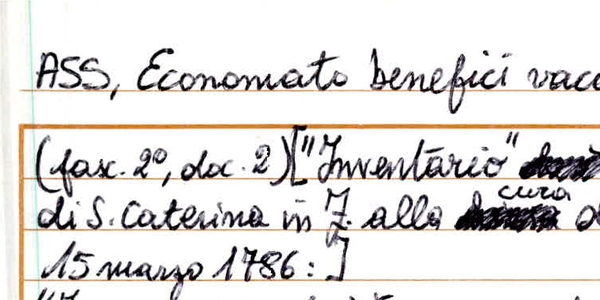 ASS, Economato benefici vaca
(fasc. 2°, doc. 2) ["Inventario"
cura
di S. Caterina in Z. alla d
15 marzo 1786:]